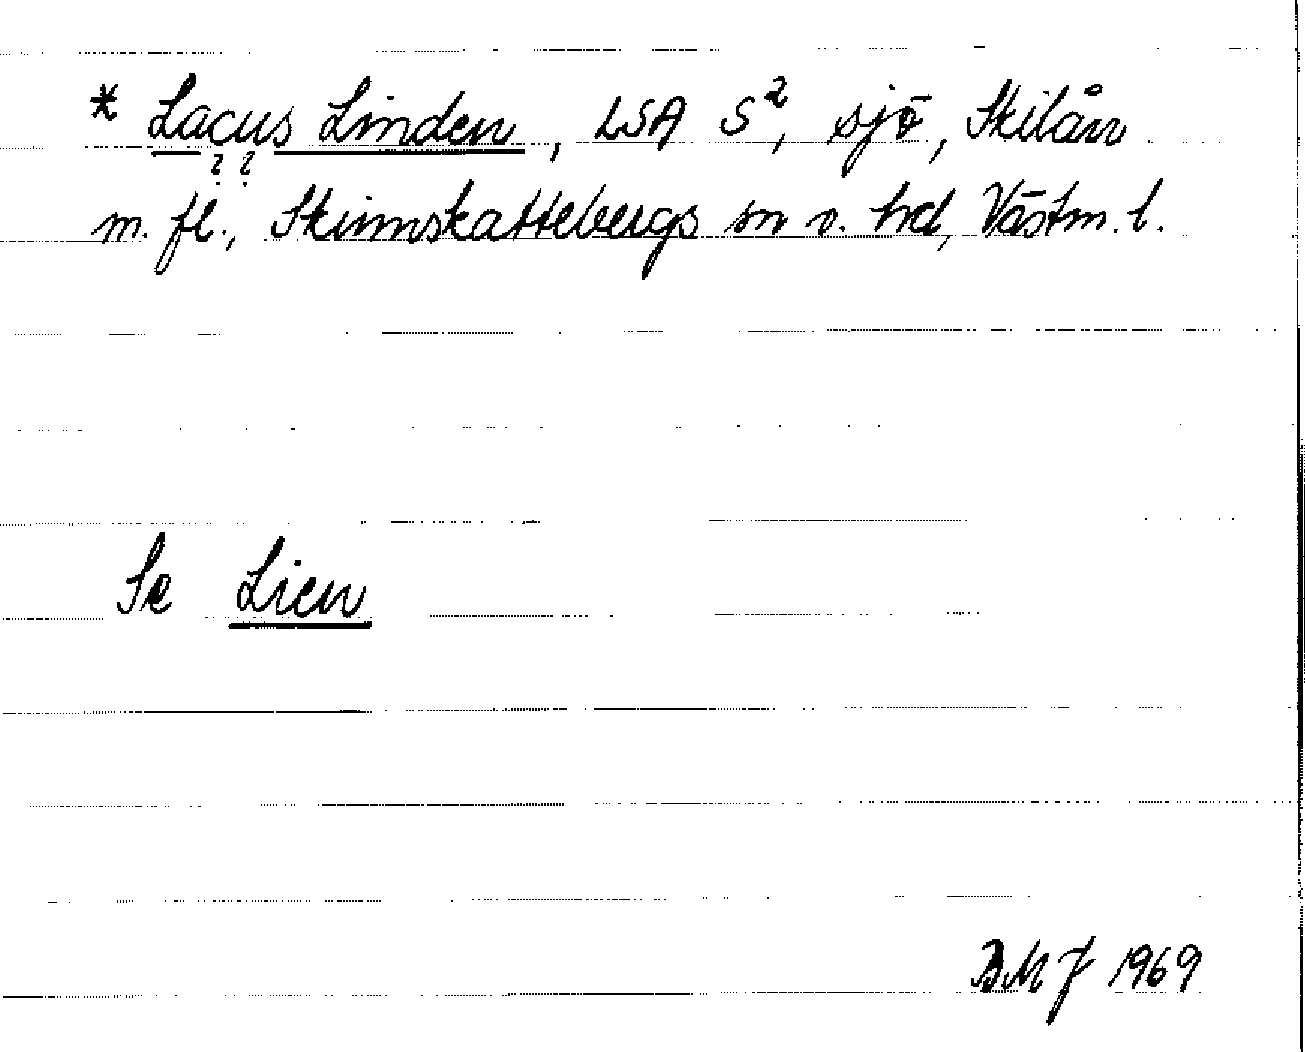 * Lacus Linden, LSA S², sjö, Skilån
? ?
m. fl., Skinnskattebergs sn o. hd, Västm. l.
Se Lien
BMJ 1969